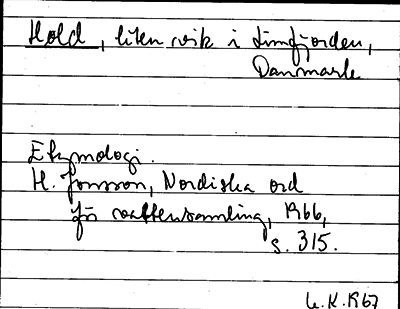 Hold, liten vik i Limfjorden,
Danmark
Etymologi.
H. Jonsson, Nordiska ord
för vattensamling, 1966,
s. 315.
U.K. 1967